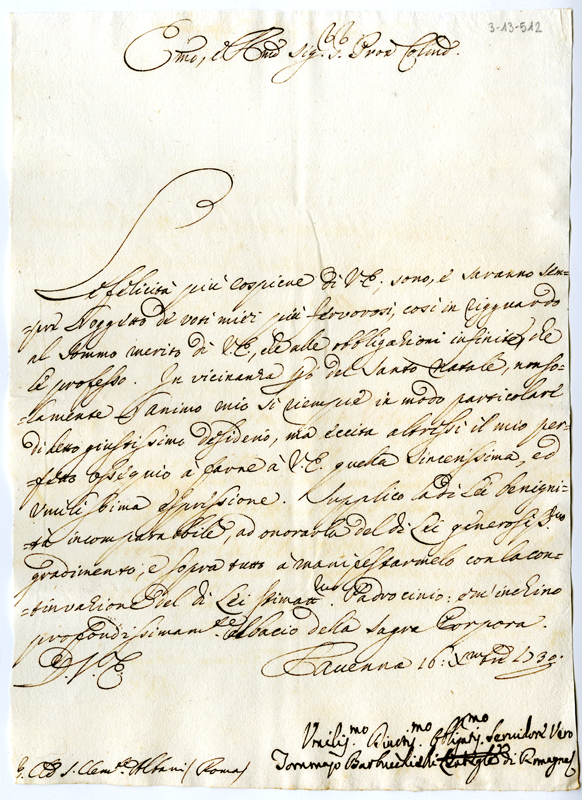 3-13-512
Emo, e Rmo Sig.r Sig.r Pron Colmo.
Le felicità più cospicue di V.E. sono, e saranno sem-
-pre l'oggetto de voti miei più fervorosi, così in riguardo
al sommo merito di V.E., che alle obbligazioni infinite, che
le professo. In vicinanza però del Santo Natale, non so-
-lamente l'animo mio si riempie in modo particolare
di detto giustissimo desiderio, ma eccita altresì il mio per-
-fetto ossequio à farne à V.E. questa sincerissima, ed
umilissima espressione. Supplico la di Lei benigni-
-tà incomparabile, ad onorarla del di Lei generosi.mo
gradimento; e sopra tutto à manifestarmelo con la con-
-tinuazione del di Lei stimatt.mo Padrocinio: e m'inchino
profondissimam.te al bacio della Sagra Porpora.
D.V.E.
Ravenna 16: Xmbre 1730.
Umiliss.mo Divotiss.mo Obbligatiss.mo Servitore Vero
Tommaso di Romagna
S. Clem.te Albani (Roma)